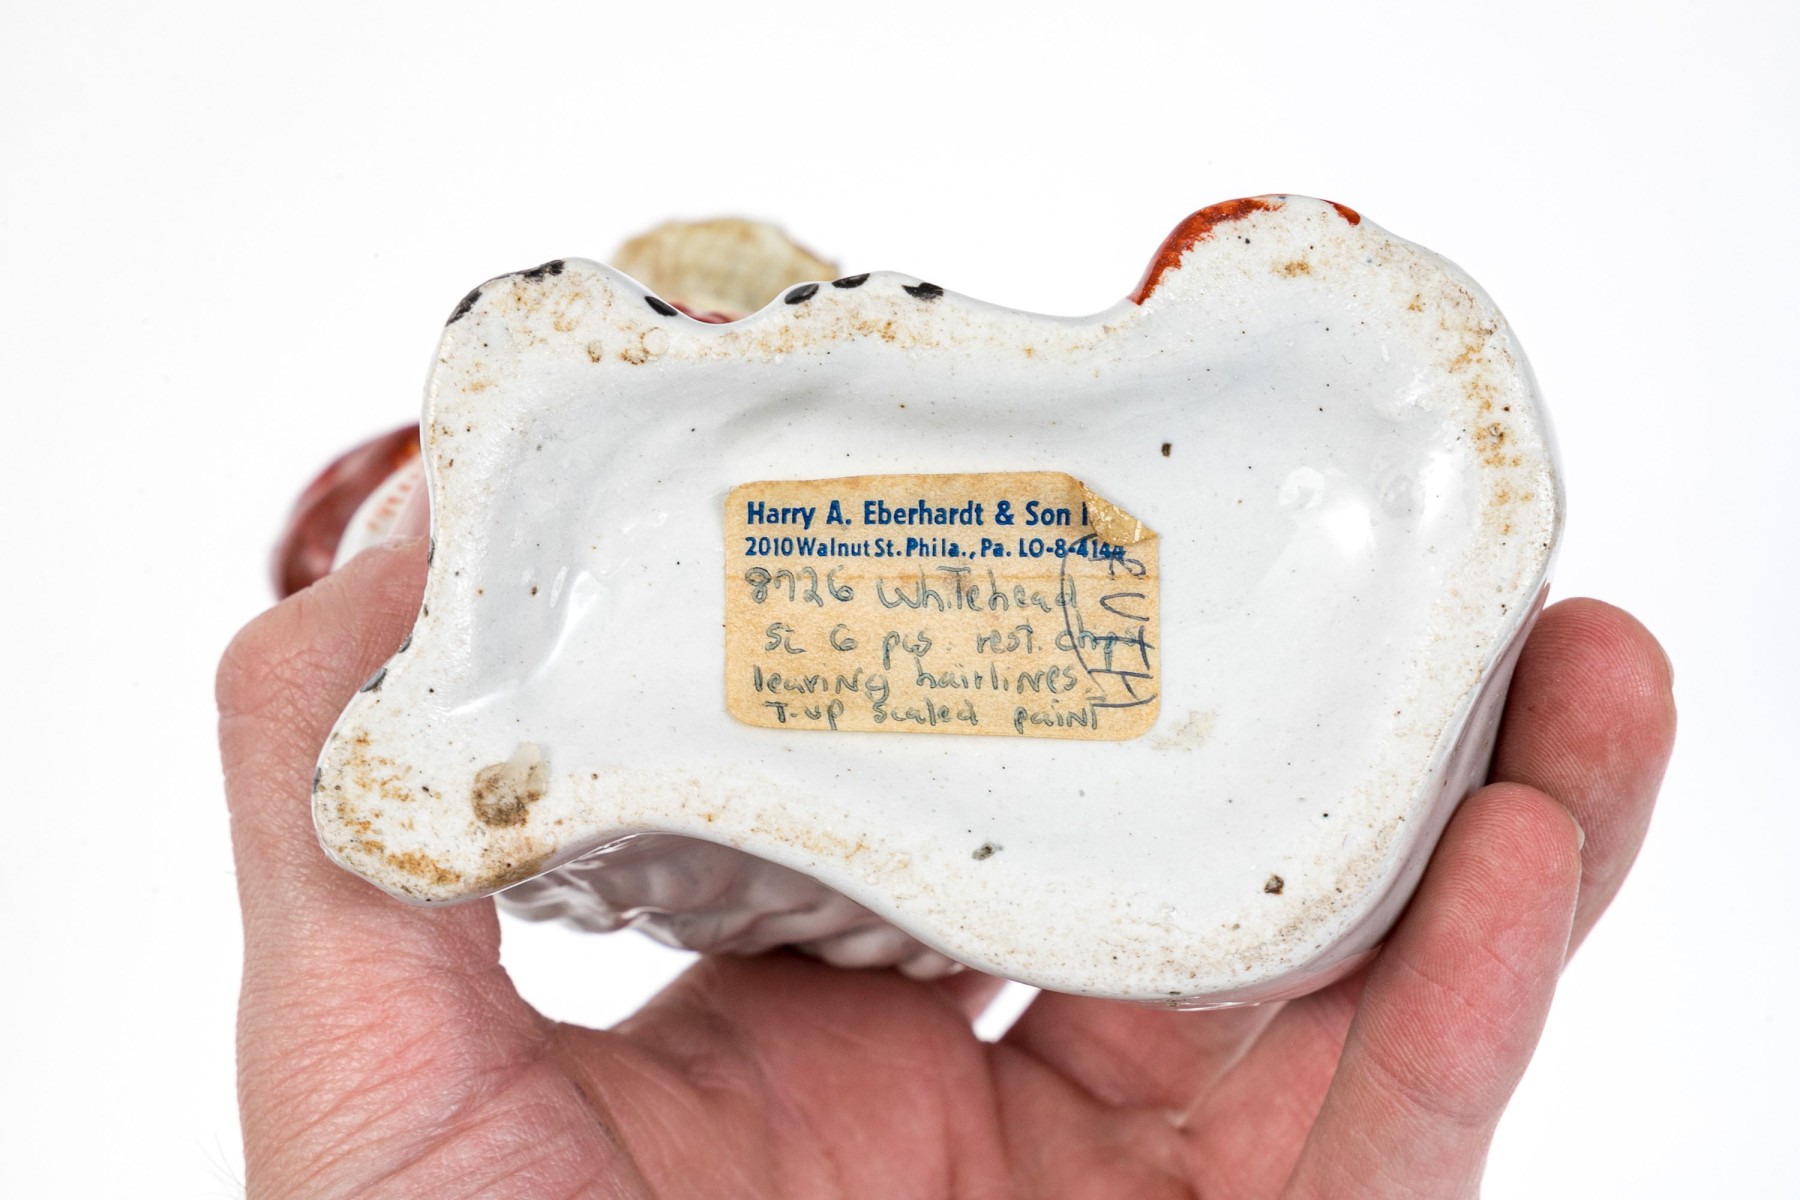 Harry A. Eberhardt & Son I
2010 Walnut St. Phila., Pa. LO-8-4144
8726 Whitehead
St 6 pcs. rest. chip
leaving hairlines
T-up scaled paint